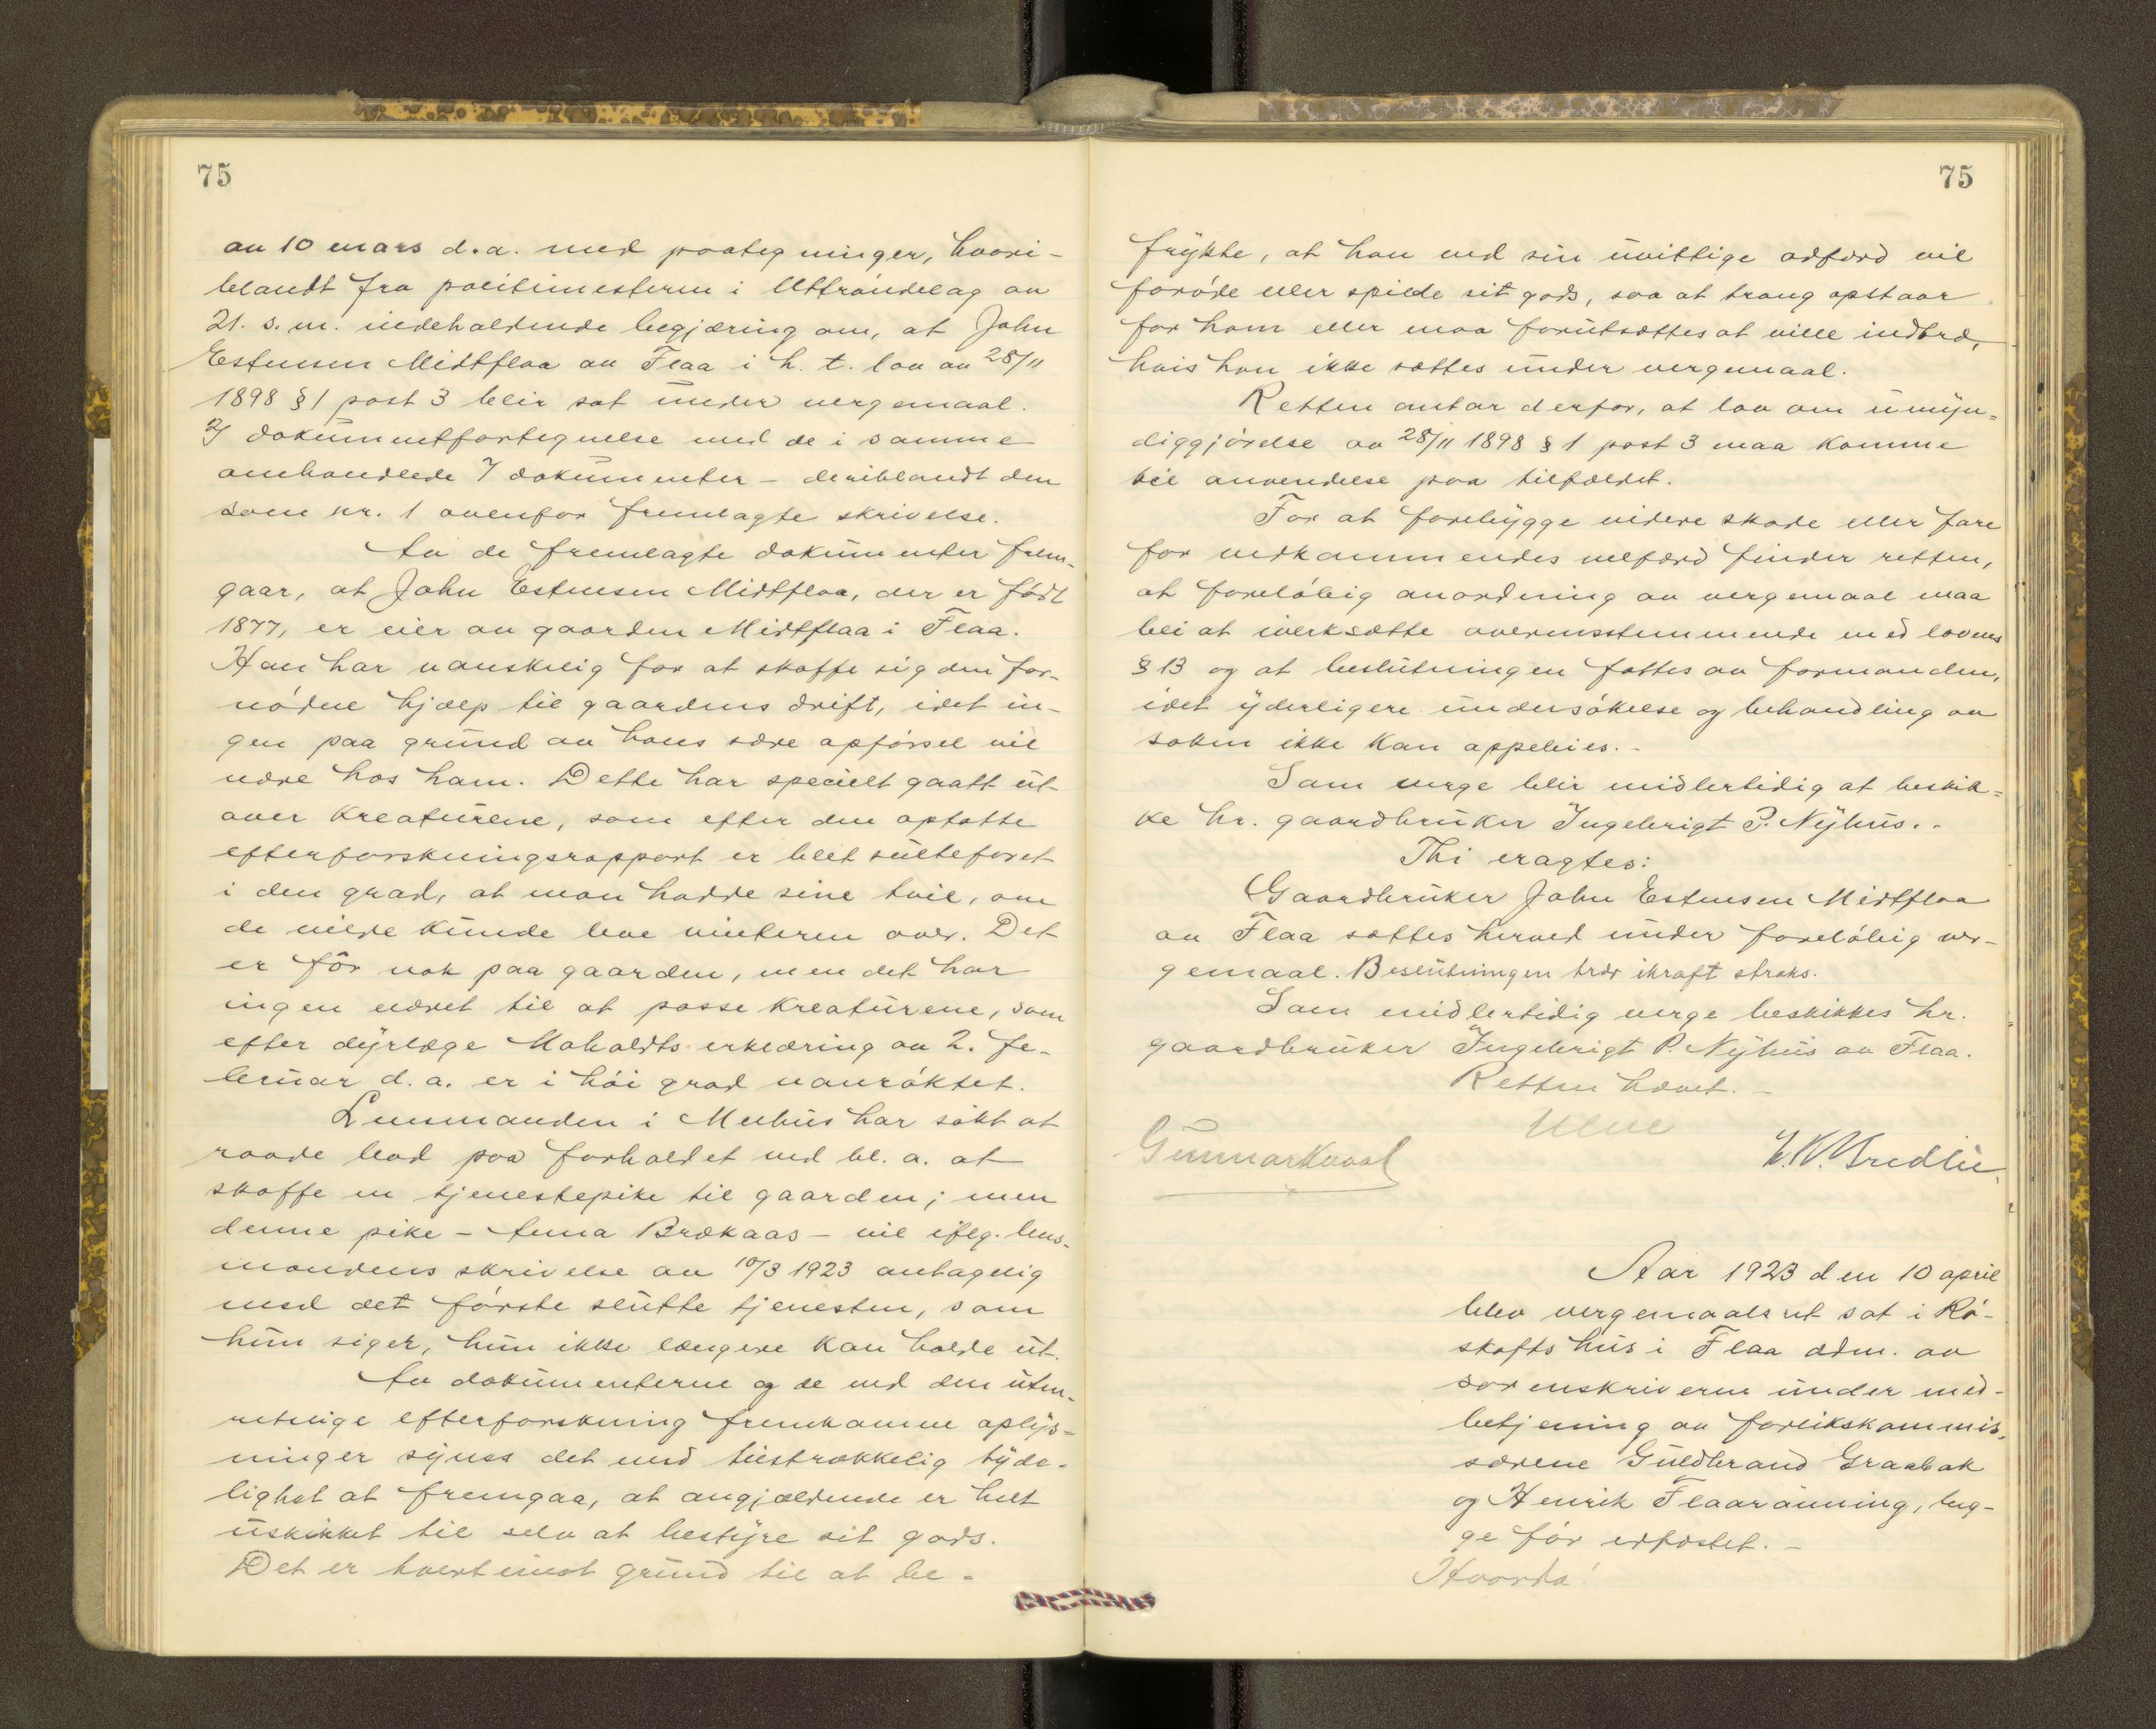 75
av 10 mars d.a. med paategninger, hvori-
blandt fra politimesteren i Uttröndelag av
21. s.m. indeholdende begjæring om, at John
Estensen Midtflaa av Flaa i h. t. lov av 28/11
1898 § 1 post 3 blir sat under vergemaal.
2/ dokumentfortegnelse med de i samme
omhandlede 7 dokumenter - deriblandt den
som nr. 1 ovenfor fremlagte skrivelse.
Av de fremlagte dokumenter frem-
gaar, at John Estensen Midtflaa, der er født
1877, er eier av gaarden Midtflaa i Flaa.
Han har vanskelig for at skaffe sig den for-
nødne hjælp til gaardens drift, idet in-
gen paa grund av hans sære opførsel vil
være hos ham. Dette har specielt gaatt ut
over kreaturene, som efter den optatte
efterforskningsrapport er blit sulteforet
i den grad, at man hadde sine tvil, om
de vilde kunde leve vinteren over. Det
er fôr nok paa gaarden, men det har
ingen været til at passe kreaturene, som
efter dyrlæge Moholdts erklæring av 2. fe-
bruar d.a. er i høi grad vanrøktet.
Lensmanden i Melhus har søkt at
raade bod paa forholdet ved bl. a. at
skaffe en tjenestepike til gaarden; men
denne pike - Anna Brækaas - vil iflg. lens-
mandens skrivelse av 10/3 1923 antagelig
med det første slutte tjenesten, som
hun siger, hun ikke længere kan holde ut.
Av dokumenterne og de ved den uten-
retslige efterforskning fremkomne oplys-
ninger synes det med tilstrækkelig tyde-
lighet at fremgaa, at angjældende er helt
uskikket til selv at bestyre sit gods.
Det er tvertimot grund til at be-
75
frykte, at han ved sin uvittige adfærd vil
forøde eller spilde sit gods, saa at trang opstaar
for ham eller maa forutsættes at ville indtræ,
hvis han ikke sættes under vergemaal.
Retten antar derfor, at lov om umyn-
diggjørelse av 28/11 1898 § 1 post 3 maa komme
til anvendelse paa tilfældet.
For at forebygge videre skade eller fare
for vedkommendes velfærd finder retten,
at foreløbig anordning av vergemaal maa
bli at iverksætte overensstemmende med lovens
§ 13 og at beslutningen fattes av formanden,
idet yderligere undersøkelse og behandling av
saken ikke kan oppebies.-
Som verge blir midlertidig at beskik-
ke hr. gaardbruker Ingebrigt P. Nyhus.-
Thi eragtes:
Gaardbruker John Estensen Midtflaa
av Flaa sættes herved under foreløbig ver-
gemaal. Beslutningen trær ikraft straks.
Som midlertidig verge beskikkes hr.
gaardbruker Ingebrigt P. Nyhus av Flaa.
Retten hævet.-
Ulve
Gunnar Kvaal
Aar 1923 den 10 april
blev vergemaalsret sat i Rø-
skafts hus i Flaa adm. av
sorenskriveren under med-
betjening av forlikskommis-
særene Guldbrand Graabak
og Henrik Flaarønning, beg-
ge før edfæstet.-
Hvorda!